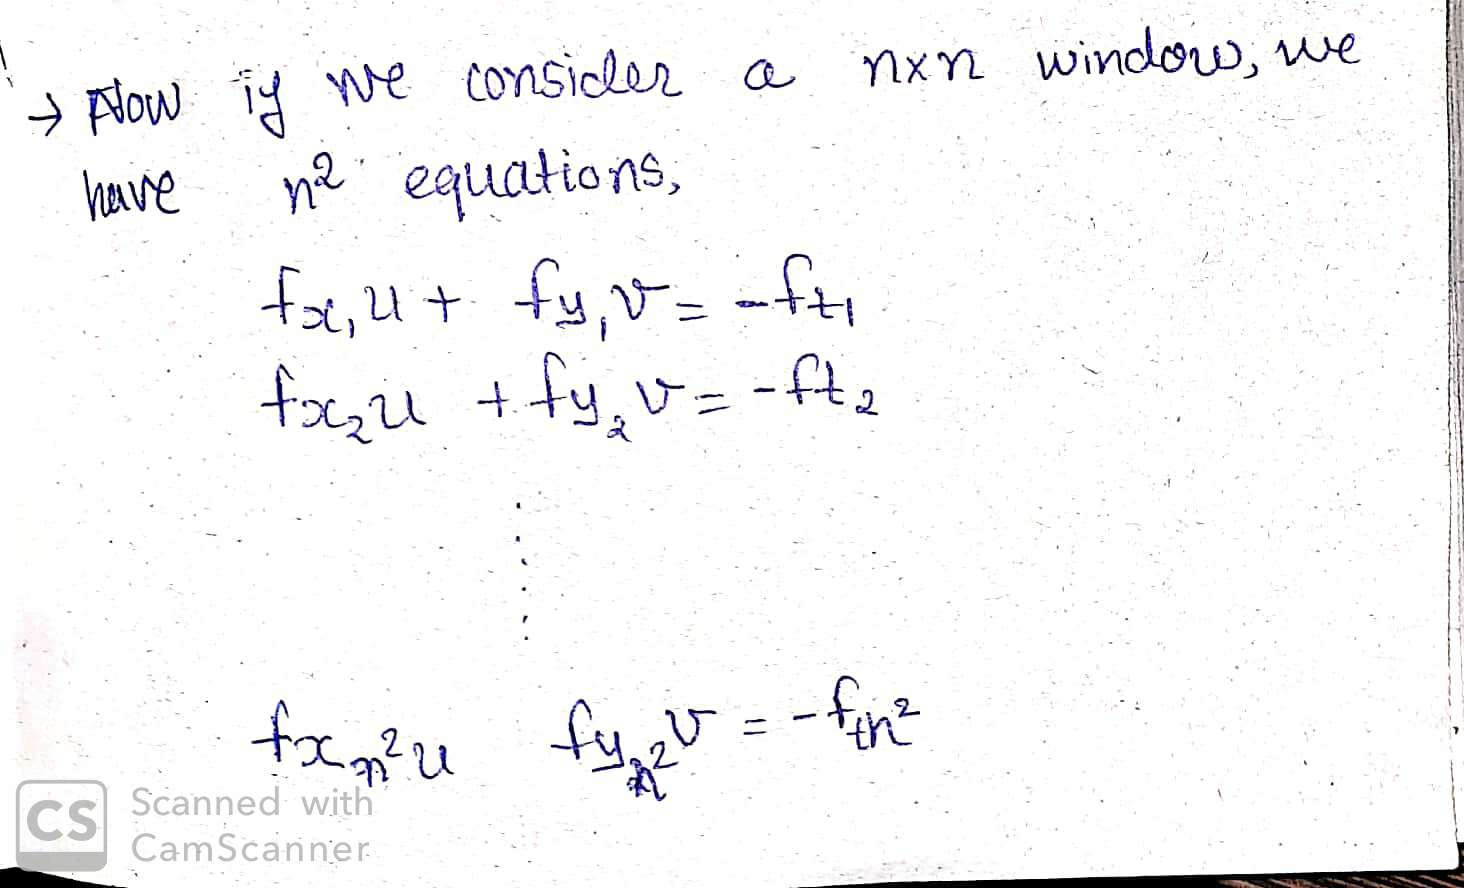 → Now if we consider a n×n window, we
have n² equations,
fx₁u + fy₁v = -ft₁
fx₂u + fy₂v = -ft₂
fxₙ²u fyₙ²v = -ftn²
CS Scanned with
CamScanner